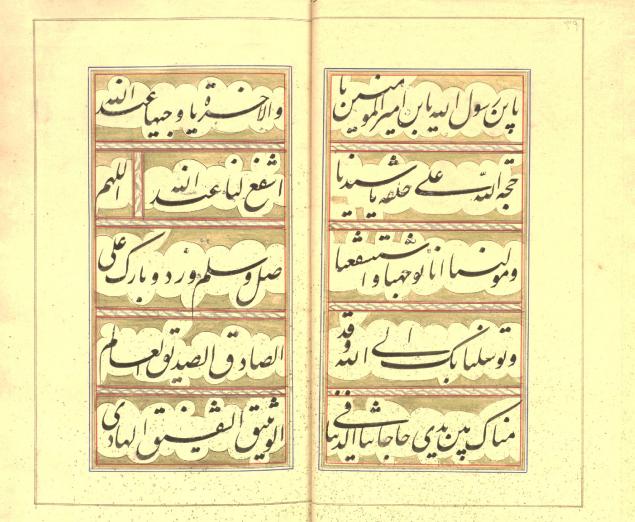 یابن رسول الله یابن امیرالمومنین یا
حجة الله علی خلقه یا سیدنا
ومولینا انا توجهنا واستشفعنا
وتوسلنا بک الی الله وقد
مناک بین یدی حاجاتنا فی الدنیا
والاخرة یا وجیها عند الله
اشفع لنا عند الله اللهم
صل وسلم وزد وبارک علی
الصادق الصدیق العالم
الوثیق الشفیق الهادی